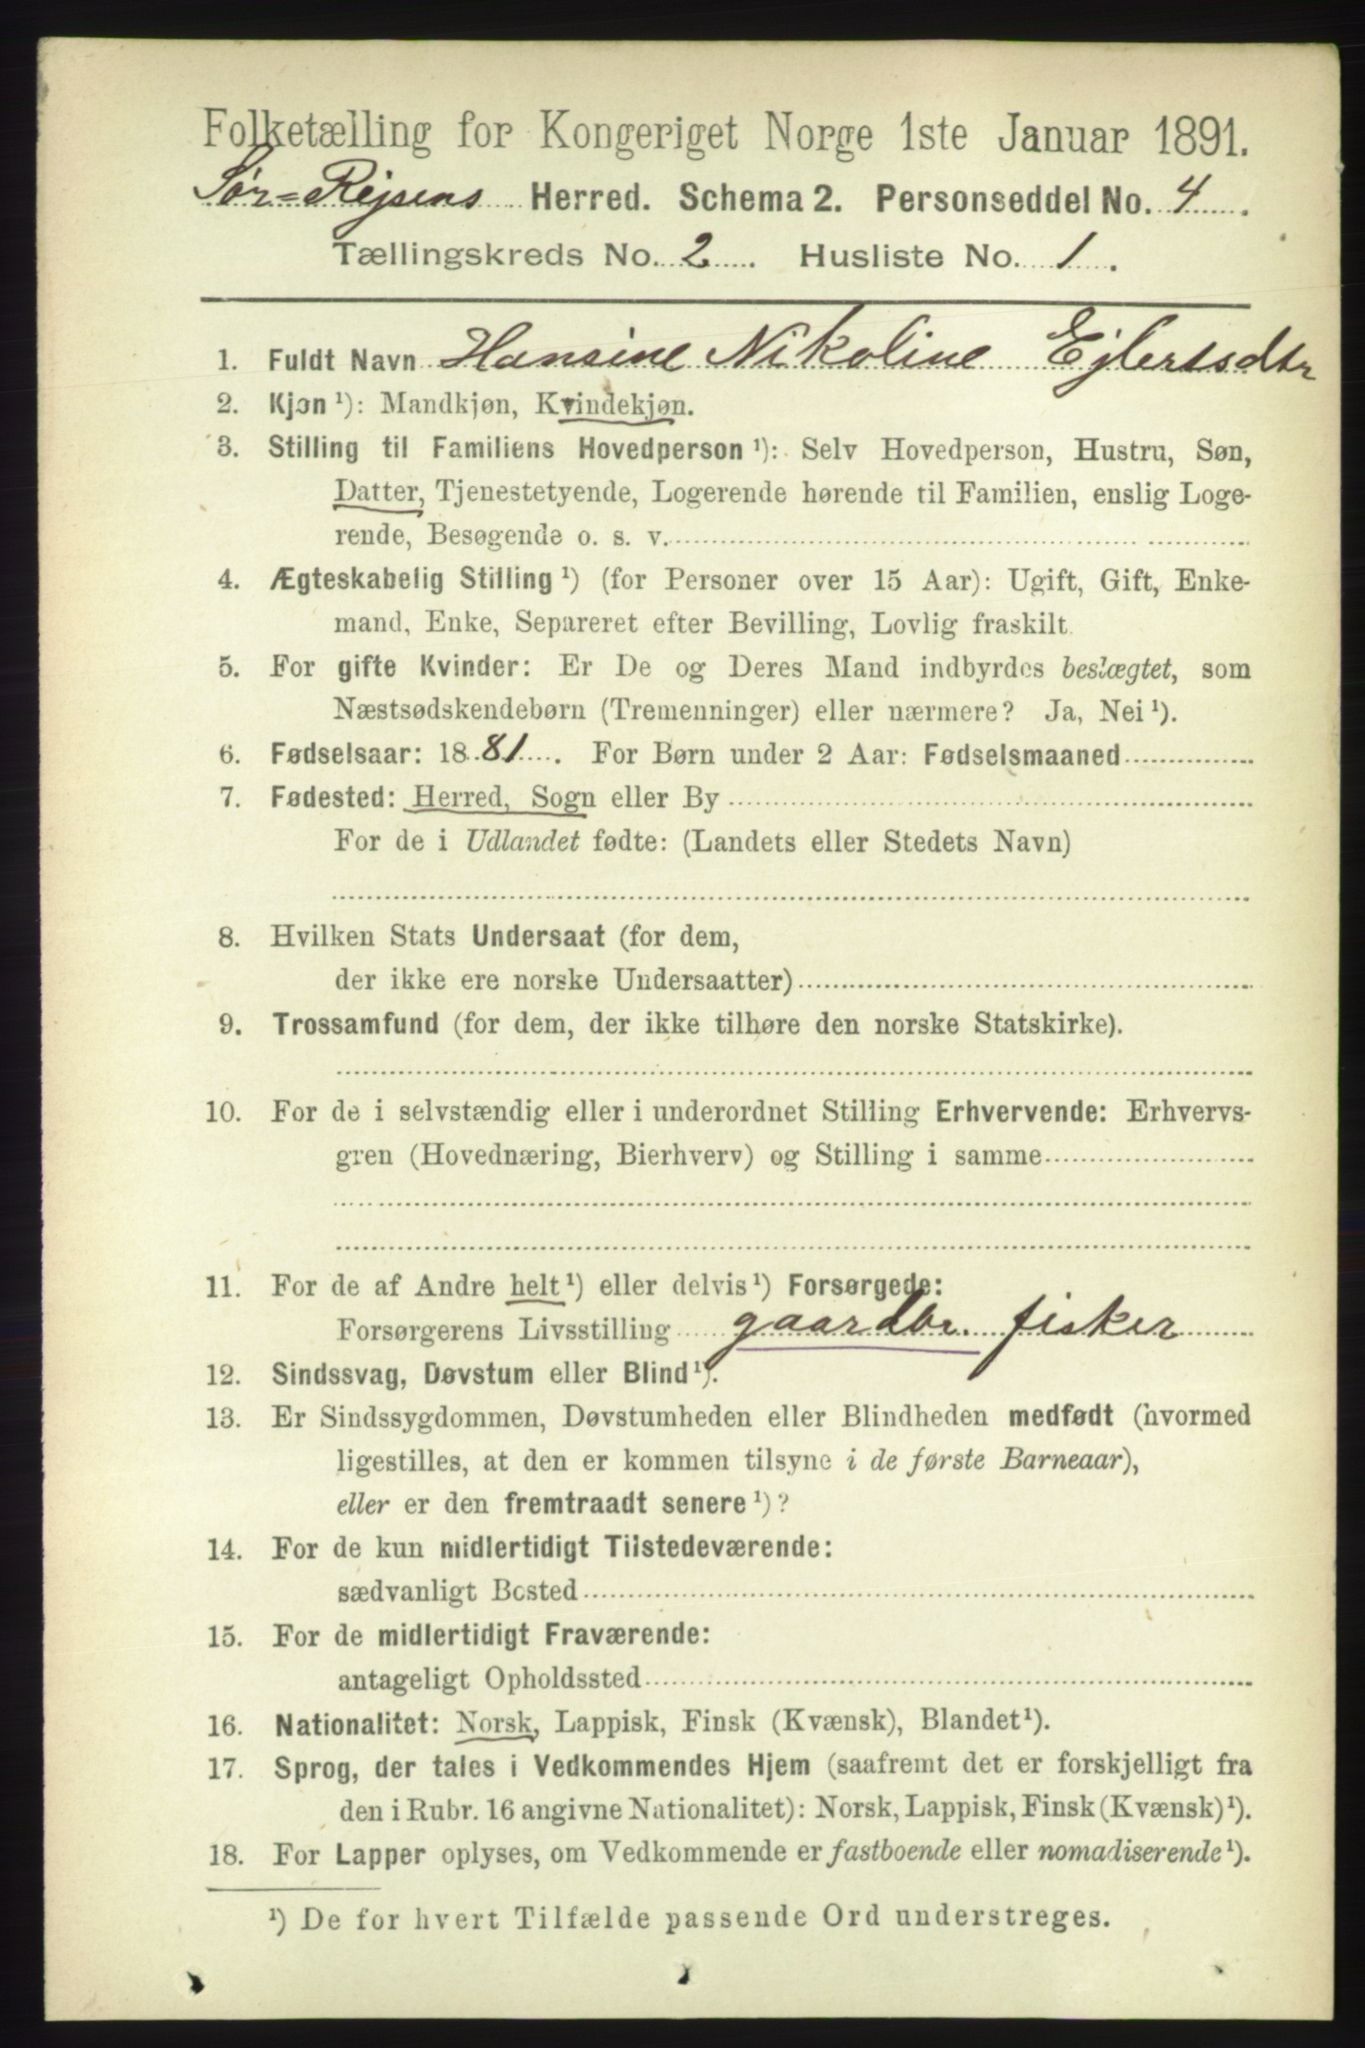 Folketælling for Kongeriget Norge 1ste Januar 1891.
Sør=Rejsens Herred. Schema 2. Personseddel No. 4.
Tællingskreds No. 2. Husliste No. 1.
1. Fuldt Navn Hansine Nikoline Ejlertsdtr
2. Kjøn ¹): Mandkjøn, Kvindekjøn.
3. Stilling til Familiens Hovedperson ¹): Selv Hovedperson, Hustru, Søn,
Datter, Tjenestetyende, Logerende hørende til Familien, enslig Loge-
rende, Besøgende o. s. v.
4. Ægteskabelig Stilling ¹) (for Personer over 15 Aar): Ugift, Gift, Enke-
mand, Enke, Separeret efter Bevilling, Lovlig fraskilt.
5. For gifte Kvinder: Er De og Deres Mand indbyrdes beslægtet, som
Næstsødskendebørn (Tremenninger) eller nærmere? Ja, Nei ¹).
6. Fødselsaar: 1881. For Børn under 2 Aar: Fødselsmaaned
7. Fødested: Herred, Sogn eller By
For de i Udlandet fødte: (Landets eller Stedets Navn)
8. Hvilken Stats Undersaat (for dem,
der ikke ere norske Undersaatter)
9. Trossamfund (for dem, der ikke tilhøre den norske Statskirke).
10. For de i selvstændig eller i underordnet Stilling Erhvervende: Erhvervs-
gren (Hovednæring, Bierhverv) og Stilling i samme
11. For de af Andre helt ¹) eller delvis ¹) Forsørgede:
Forsørgerens Livsstilling gaardbr. fisker
12. Sindssvag, Døvstum eller Blind ¹).
13. Er Sindssygdommen, Døvstumheden eller Blindheden medfødt (hvormed
ligestilles, at den er kommen tilsyne i de første Barneaar),
eller er den fremtraadt senere ¹)?
14. For de kun midlertidigt Tilstedeværende:
sædvanligt Bosted
15. For de midlertidigt Fraværende:
antageligt Opholdssted
16. Nationalitet: Norsk, Lappisk, Finsk (Kvænsk), Blandet ¹).
17. Sprog, der tales i Vedkommendes Hjem (saafremt det er forskjelligt fra
den i Rubr. 16 angivne Nationalitet): Norsk, Lappisk, Finsk (Kvænsk) ¹).
18. For Lapper oplyses, om Vedkommende er fastboende eller nomadiserende ¹).
¹) De for hvert Tilfælde passende Ord understreges.